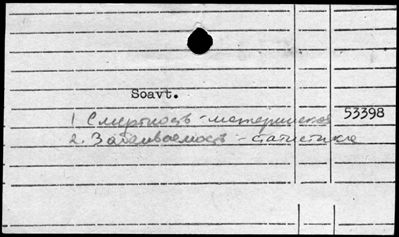 Soavt.
1 Смертность - материнская 53398
2. Заболеваемость - статистика